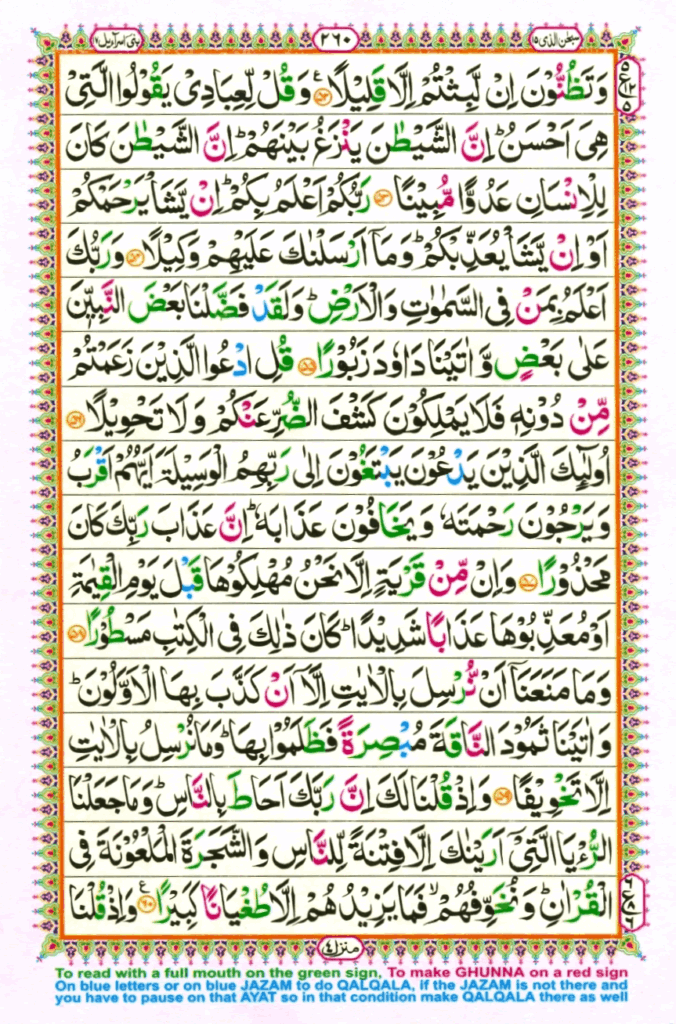 سبحٰن الذی ۱۵
۲۶۰
بنی اسرآءیل ۱۷
وَتَظُنُّوْنَ اِنْ لَّبِثْتُمْ اِلَّا قَلِیْلًا ﴿۵۲﴾ وَقُلْ لِّعِبَادِیْ یَقُوْلُوا الَّتِیْ
هِیَ اَحْسَنُ ؕ اِنَّ الشَّیْطٰنَ یَنْزَغُ بَیْنَهُمْ ؕ اِنَّ الشَّیْطٰنَ كَانَ
لِلْاِنْسَانِ عَدُوًّا مُّبِیْنًا ﴿۵۳﴾ رَبُّكُمْ اَعْلَمُ بِكُمْ ؕ اِنْ یَّشَاْ یَرْحَمْكُمْ
اَوْ اِنْ یَّشَاْ یُعَذِّبْكُمْ ؕ وَمَاۤ اَرْسَلْنٰكَ عَلَیْهِمْ وَكِیْلًا ﴿۵۴﴾ وَرَبُّكَ
اَعْلَمُ بِمَنْ فِی السَّمٰوٰتِ وَالْاَرْضِ ؕ وَلَقَدْ فَضَّلْنَا بَعْضَ النَّبِیّٖنَ
عَلٰی بَعْضٍ وَّاٰتَیْنَا دَاوٗدَ زَبُوْرًا ﴿۵۵﴾ قُلِ ادْعُوا الَّذِیْنَ زَعَمْتُمْ
مِّنْ دُوْنِهٖ فَلَا یَمْلِكُوْنَ كَشْفَ الضُّرِّ عَنْكُمْ وَلَا تَحْوِیْلًا ﴿۵۶﴾
اُولٰٓئِكَ الَّذِیْنَ یَدْعُوْنَ یَبْتَغُوْنَ اِلٰی رَبِّهِمُ الْوَسِیْلَةَ اَیُّهُمْ اَقْرَبُ
وَیَرْجُوْنَ رَحْمَتَهٗ وَیَخَافُوْنَ عَذَابَهٗ ؕ اِنَّ عَذَابَ رَبِّكَ كَانَ
مَحْذُوْرًا ﴿۵۷﴾ وَاِنْ مِّنْ قَرْیَةٍ اِلَّا نَحْنُ مُهْلِكُوْهَا قَبْلَ یَوْمِ الْقِیٰمَةِ
اَوْ مُعَذِّبُوْهَا عَذَابًا شَدِیْدًا ؕ كَانَ ذٰلِكَ فِی الْكِتٰبِ مَسْطُوْرًا ﴿۵۸﴾
وَمَا مَنَعَنَاۤ اَنْ نُّرْسِلَ بِالْاٰیٰتِ اِلَّاۤ اَنْ كَذَّبَ بِهَا الْاَوَّلُوْنَ ؕ
وَاٰتَیْنَا ثَمُوْدَ النَّاقَةَ مُبْصِرَةً فَظَلَمُوْا بِهَا ؕ وَمَا نُرْسِلُ بِالْاٰیٰتِ
اِلَّا تَخْوِیْفًا ﴿۵۹﴾ وَاِذْ قُلْنَا لَكَ اِنَّ رَبَّكَ اَحَاطَ بِالنَّاسِ ؕ وَمَا جَعَلْنَا
الرُّءْیَا الَّتِیْۤ اَرَیْنٰكَ اِلَّا فِتْنَةً لِّلنَّاسِ وَالشَّجَرَةَ الْمَلْعُوْنَةَ فِی
الْقُرْاٰنِ ؕ وَنُخَوِّفُهُمْ ۙ فَمَا یَزِیْدُهُمْ اِلَّا طُغْیَانًا كَبِیْرًا ﴿۶۰﴾ وَاِذْ قُلْنَا
منزل ۴
To read with a full mouth on the green sign, To make GHUNNA on a red sign
On blue letters or on blue JAZAM to do QALQALA, if the JAZAM is not there and
you have to pause on that AYAT so in that condition make QALQALA there as well